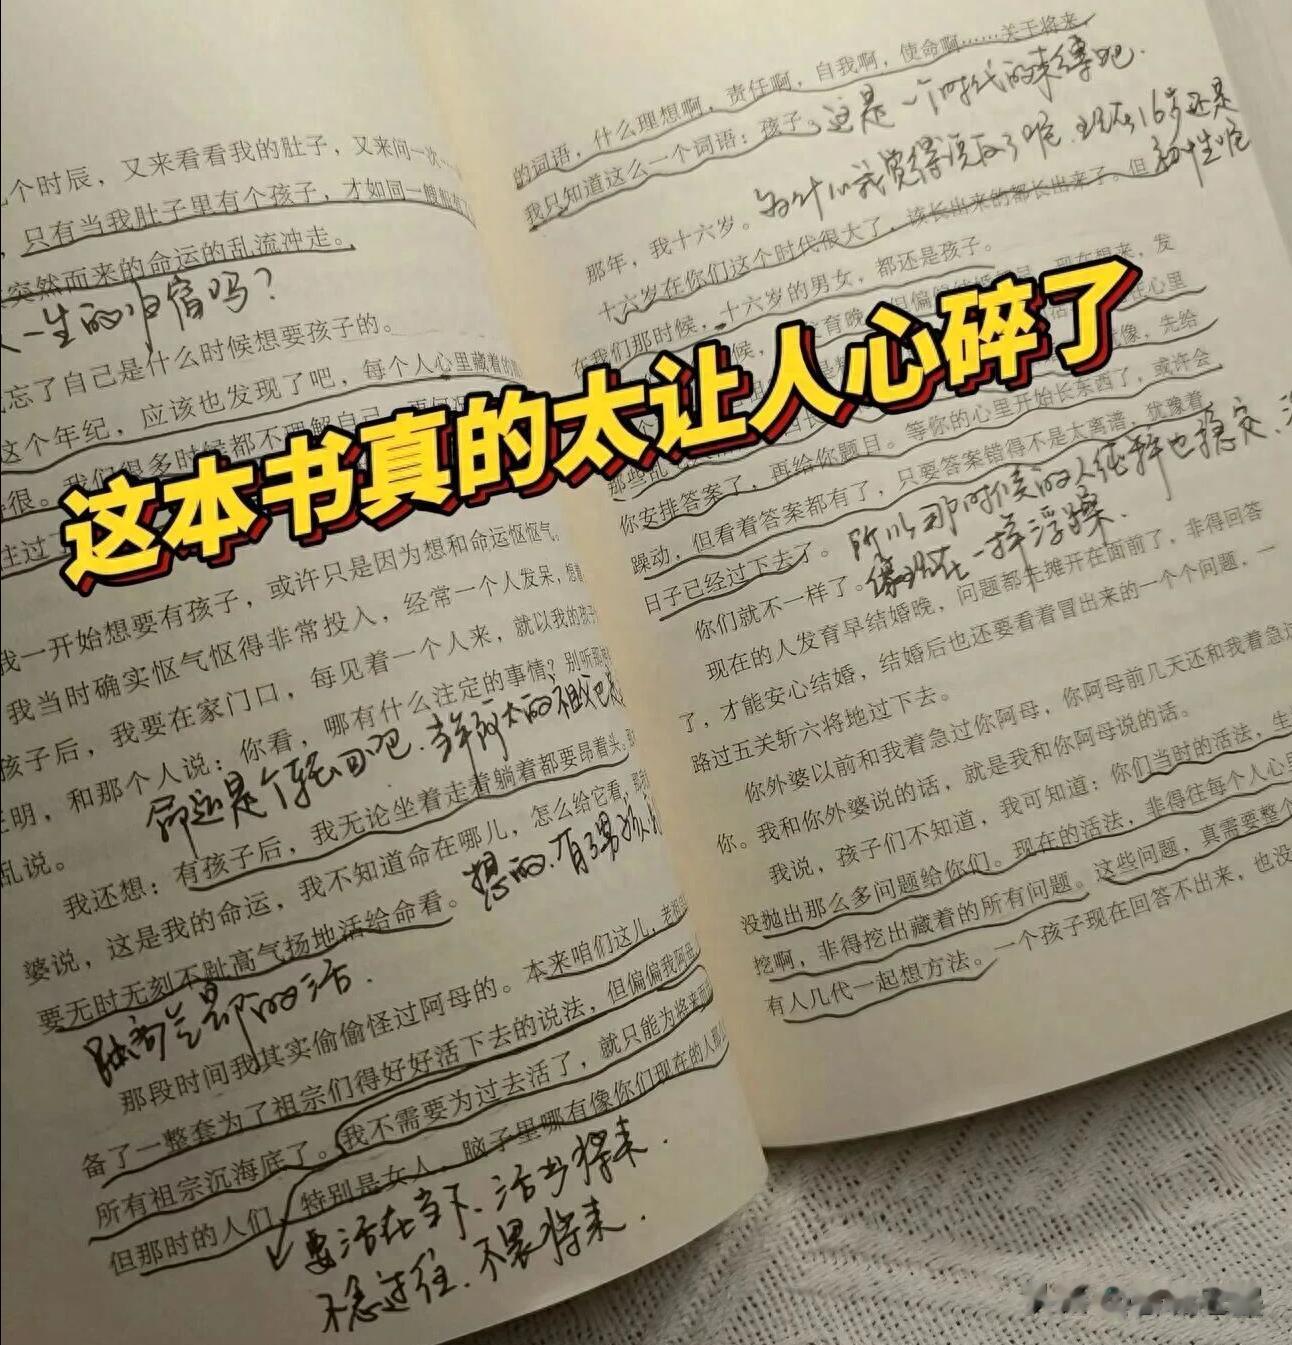 个时辰，又来看看我的肚子，又来问一次
只有当我肚子里有个孩子，才如同一艘船有了
突然而来的命运的乱流冲走。
一生的归宿吗？
忘了自己是什么时候想要孩子的。
这个年纪，应该也发现了吧，每个人心里藏着的
很。我们很多时候都不理解自己
往过
我一开始想要有孩子，或许只是因为想和命运怄怄气。
我当时确实怄气怄得非常投入，经常一个人发呆，想着
孩子后，我要在家门口，每见着一个人来，就以我的孩子
证明，和那个人说：你看，哪有什么注定的事情？别听那
乱说。
命还是个轮回吧
我还想：有孩子后，我无论坐着走着躺着都要昂着头。那
婆说，这是我的命运，我不知道命在哪儿，怎么给它看，那我
要无时无刻不趾高气扬地活给命看。
想的，有了男孩
趾高气昂的活．
那段时间我其实偷偷怪过阿母的。本来咱们这儿，老祖
备了一整套为了祖宗们得好好活下去的说法，但偏偏我阿母
所有祖宗沉海底了。我不需要为过去活了，就只能为将来而
但那时的人们，特别是女人，脑子里哪有像你们现在的人那么
要活在当下、活当将来．
不念过往．不畏将来．
的词语，什么理想啊，责任啊，自我啊，使命啊……关于将来，
我只知道这么一个词语：孩子。
这是一个时代的束缚吧．
为什么我觉得说反了呢．现在16岁还是
那年，我十六岁。
十六岁在你们这个时代很大了，该长出来的都长出来了。但
在我们那时候，十六岁的男女，都还是孩子。
现在想来，发
你安排答案了，再给你题目。等你的心里开始长东西了，或许会
躁动，但看着答案都有了，只要答案错得不是太离谱，犹豫着
日子已经过下去了。
所以那时候的人纯粹也稳定、
像现在一样浮躁．
你们就不一样了。
现在的人发育早结婚晚，问题都先摊开在面前了，非得回答
了，才能安心结婚，结婚后也还要看着冒出来的一个个问题，一
路过五关斩六将地过下去。
你外婆以前和我着急过你阿母，你阿母前几天还和我着急过
你。我和你外婆说的话，就是我和你阿母说的话。
我说，孩子们不知道，我可知道：你们当时的活法，生
没抛出那么多问题给你们。现在的活法，非得往每个人心里
挖啊，非得挖出藏着的所有问题。这些问题，真需要整个
有人几代一起想方法。一个孩子现在回答不出来，也没
这本书真的太让人心碎了